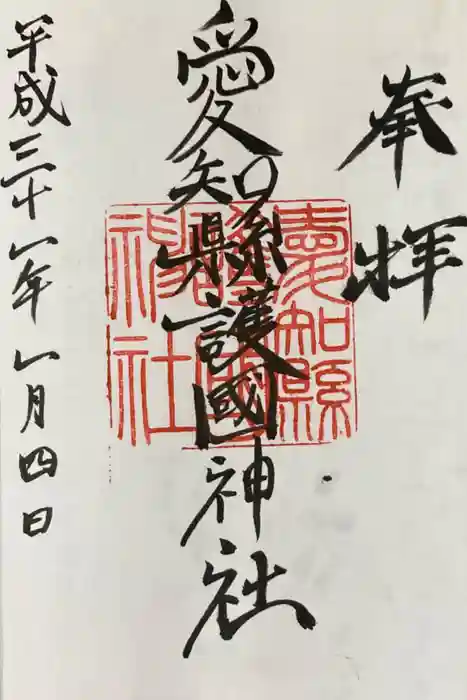 奉拝
愛知縣護國神社
愛知縣
護國
神社
平成三十一年一月四日